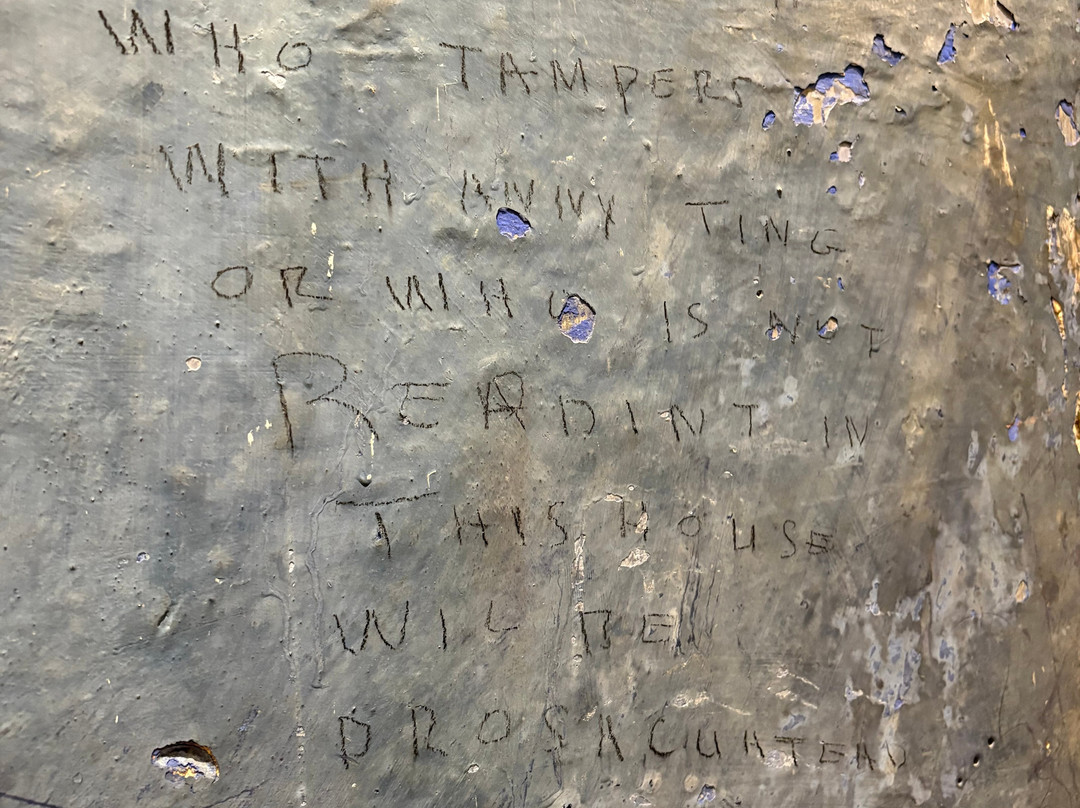 WHO TAMPERS
WITH ANNY TING
OR WHO IS NOT
READINT IN
THIS HOUSE
WIL BE
PROSACUATEAD